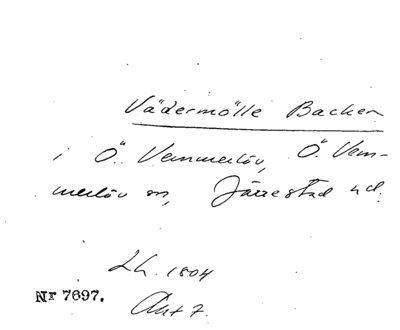 Vädermölle Backen
i Ö. Vemmerlöv, Ö. Vem-
merlöv sn, Järrestad hd.
Lh. 1804
Akt 7.
Nr 7697.